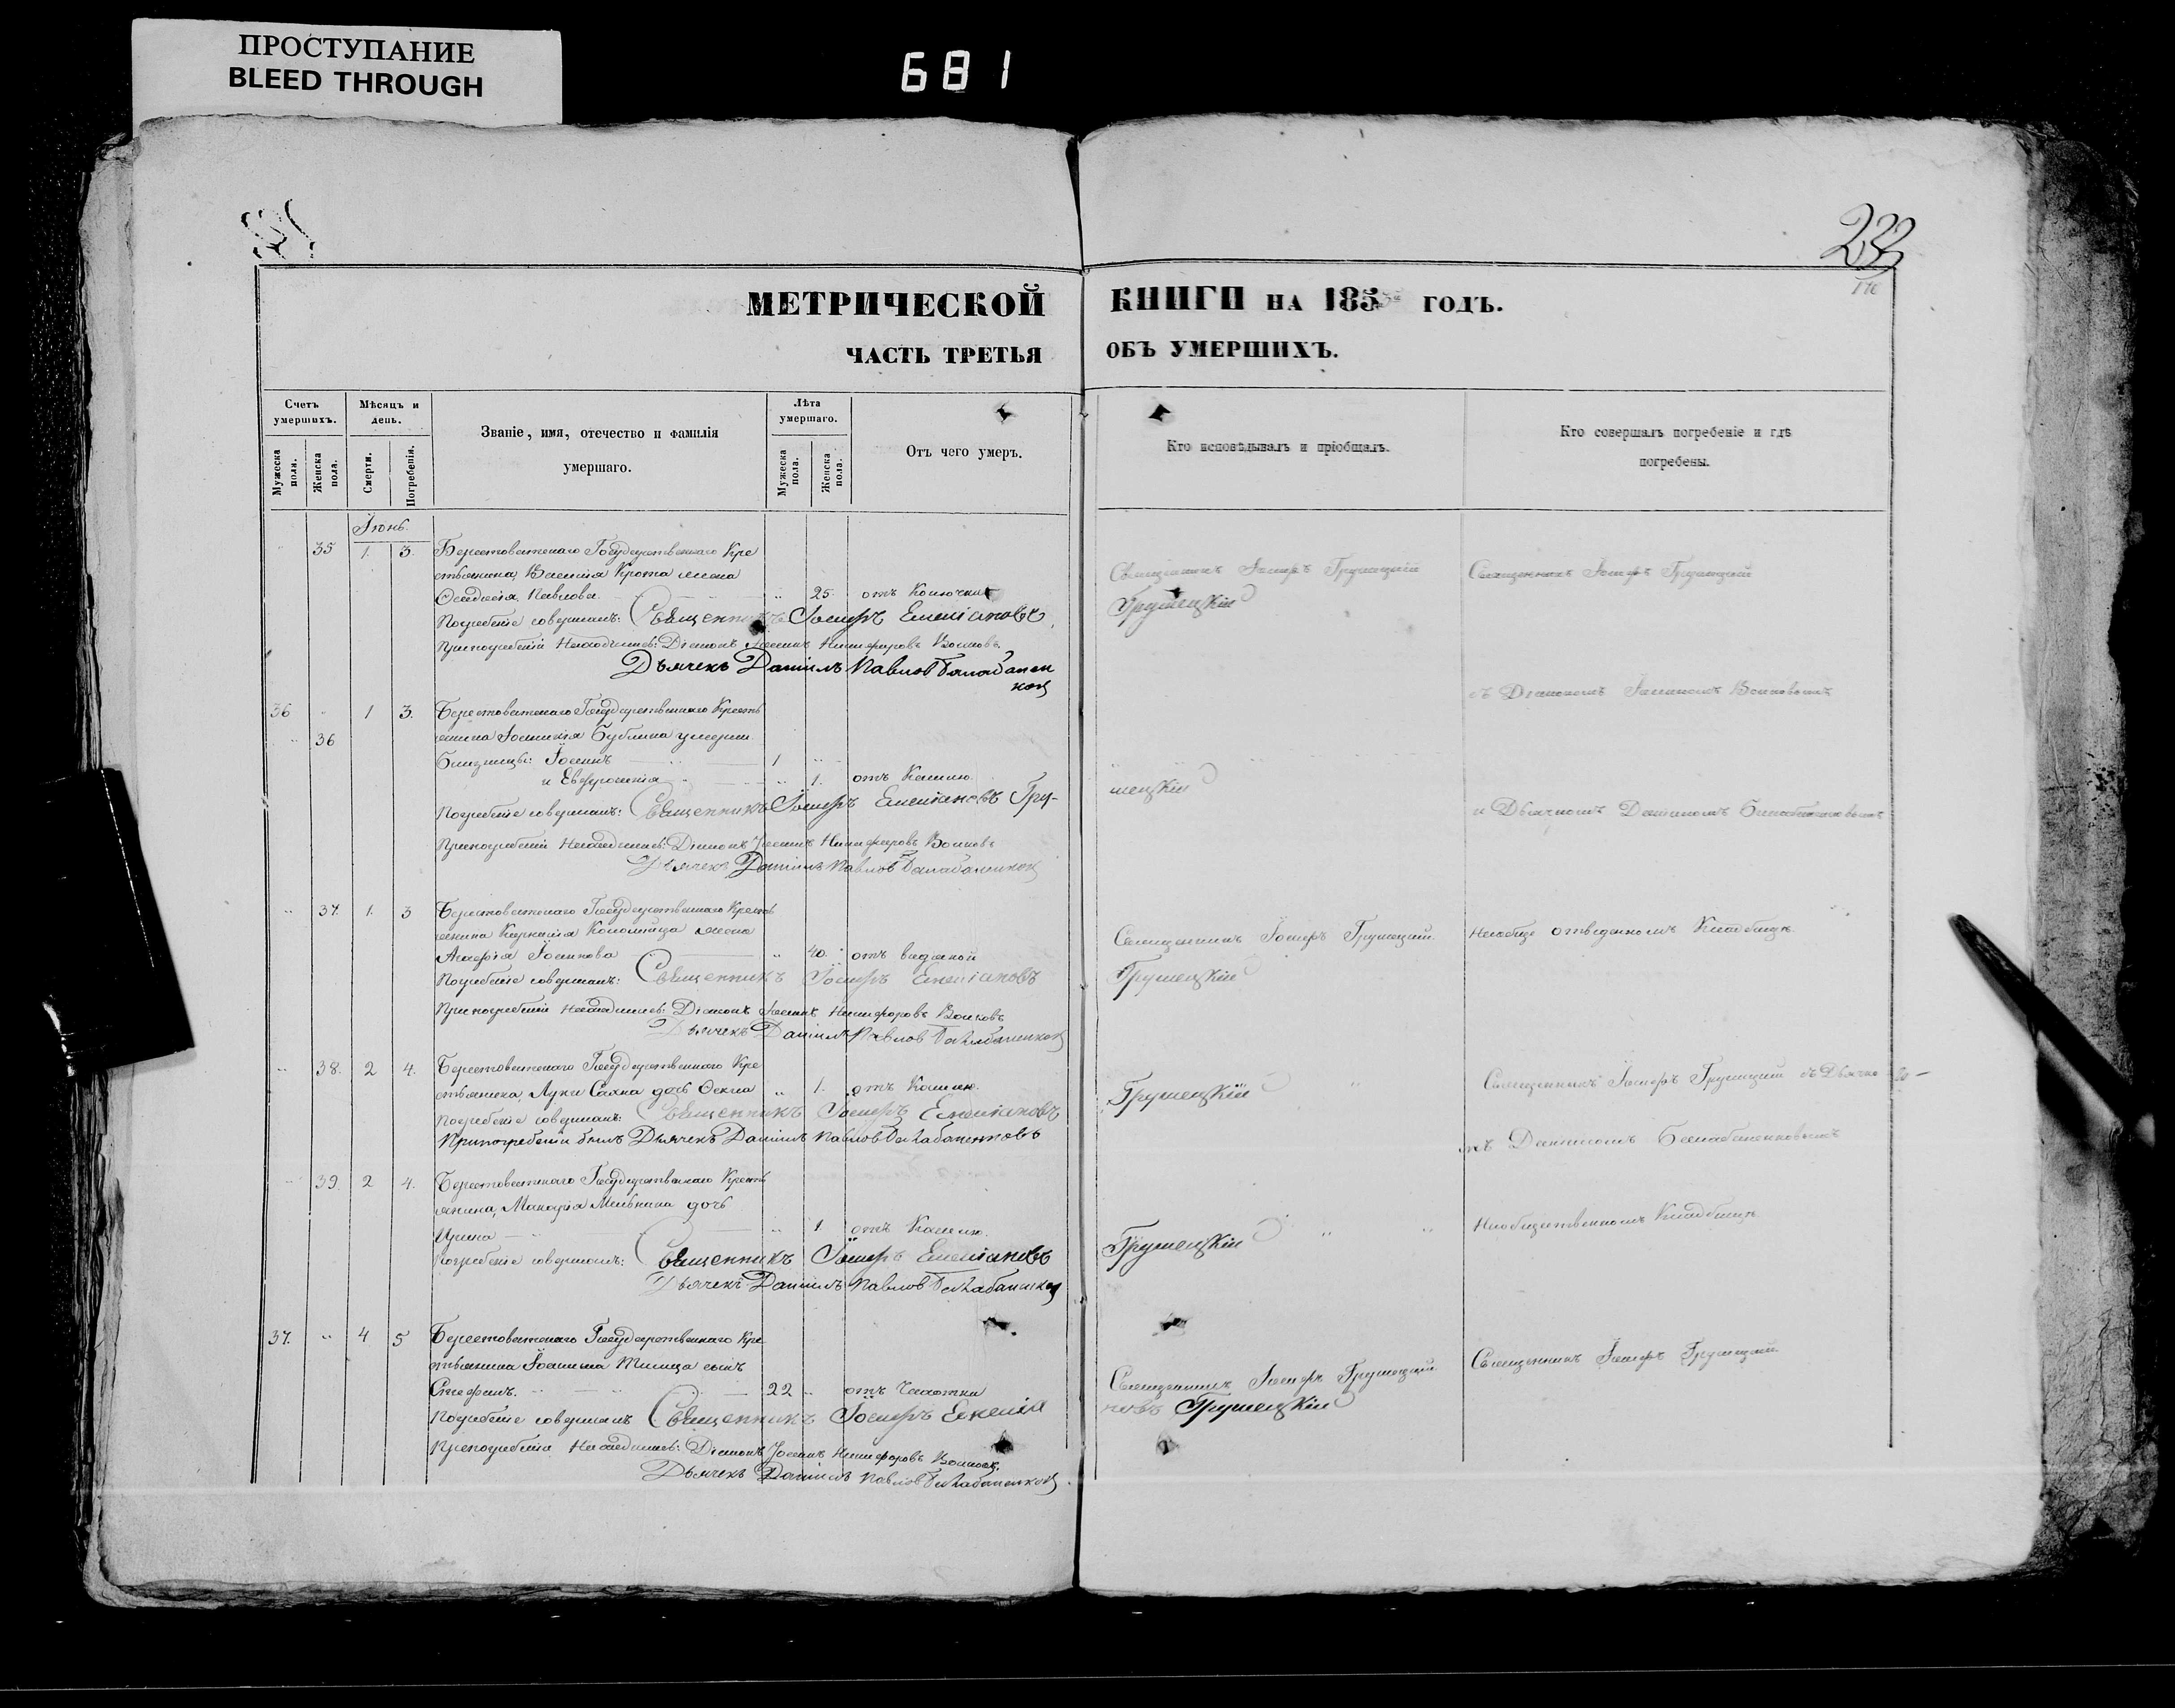 ПРОСТУПАНИЕ
BLEED THROUGH
681
233
МЕТРИЧЕСКОЙ КНИГИ НА 185 ГОДЪ.
ЧАСТЬ ТРЕТЬЯ ОБЪ УМЕРШИХЪ.
Счетъ умершихъ.
Мужеска пола.
Женска пола.
Мѣсяцъ и день.
Смерти.
Погребенія.
Званіе, имя, отечество и фамилія
умершаго.
Лѣта умершаго.
Мужеска пола.
Женска пола.
Отъ чего умеръ.
Кто исповѣдывалъ и пріобщалъ.
Кто совершалъ погребеніе и гдѣ
погребены.
Іюнь.
35 1. 3. Берестовеньскаго Государственнаго Кре
стьянина, Василія Крота жена
Павлова. 25. отъ Колючки
Священникъ Іосифъ Грушецкій
Священникъ Іосифъ Грушецкій
Погребеніе совершалъ: Священникъ Іосифъ Емеліановъ
Грушецкій
При погребеніи Находились: Діаконъ Іоаннъ Никифоровъ Волковъ.
Дьячекъ Даніилъ Павловъ Балабанен
ковъ
съ Діакономъ Іоанномъ Волковымъ
36 1 3. Берестовеньскаго Государственнаго Кресть
36 янина Бублика умерли
близнецы: Іоаннъ 1
и Евфросинія 1. отъ Кашлю.
Погребеніе совершалъ: Священникъ Іосифъ Емеліановъ Гру-
шецкій
и Дьячкомъ Даніиломъ Балабаненковымъ
При погребеніи Находились: Діаконъ Іоаннъ Никифоровъ Волковъ
Дьячекъ Даніилъ Павловъ Балабаненковъ
37. 1. 3 Берестовеньскаго Государственнаго Кресть
янина Коломійца жена
Агафія 40. отъ
Священникъ Іосифъ Грушецкій
отведенномъ Кладбищѣ.
Погребеніе совершалъ: Священникъ Іосифъ Емеліановъ
Грушецкій
При погребеніи Находились: Діаконъ Іоаннъ Никифоровъ Волковъ
Дьячекъ Даніилъ Павловъ Балабаненковъ
38. 2 4. Берестовеньскаго Государственнаго Кре
стьянина, Луки Сахна дочь Оекла 1. отъ Кашлю.
Священникъ Іосифъ Грушецкій съ Дьячко-
Погребеніе совершалъ: Священникъ Іосифъ Емеліановъ
Грушецкій
При погребеніи былъ Дьячекъ Даніилъ Павловъ Балабаненковъ
мъ Даніиломъ Балабаненковымъ
39. 2 4. Берестовеньскаго Государственнаго Кресть
янина, Макарія Мельника дочь
Ирина 1 отъ Кашлю.
На общественномъ Кладбищѣ.
Погребеніе совершалъ: Священникъ Іосифъ Емеліановъ
Грушецкій
Дьячекъ Даніилъ Павловъ Балабаненковъ
37. 4 5 Берестовеньскаго Государственнаго Кре
стьянина Іоанна сынъ
Стефанъ. 22 отъ Чахотки
Священникъ Іосифъ Грушецкій
Священникъ Іосифъ Грушецкій
Погребеніе совершалъ Священникъ Іосифъ Емеліа
новъ Грушецкій
При погребеніи Находились: Діаконъ Іоаннъ Никифоровъ Волковъ.
Дьячекъ Даніилъ Павловъ Балабаненковъ.